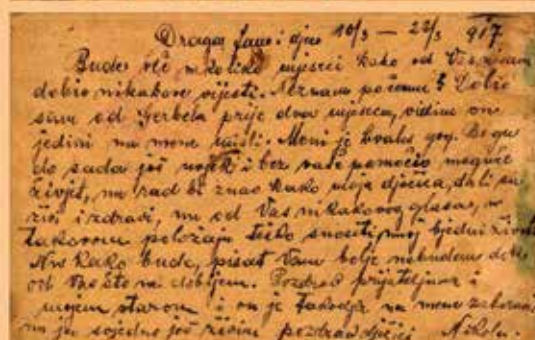 Draga Jane i djeco 10/3 — 22/3 917
Bude već nekoliko mjeseci kako od Vas nijesam
dobio nikakove vijesti. Neznam počemu? Dobio
sam od Gerbela prije dva mjeseca, vidim on
jedini na mene misli. Meni je hvala gosp. Bogu
do sada još uvjek i bez vaše pomoći moguće
živjet, na rad bi znao kako moja dječica, dali su
živi i zdravi, no od Vas nikakovog glasa, u
takovom položaju teško snositi moj bjedni život
No kako bude, pisat Vam bolje nebudem dok
od Vas što ne dobijem. Pozdrav prijateljima i
mojem starom i on je takodjer na mene zaboravio
no ja svejedno još živim pozdrav dječici Nikola.